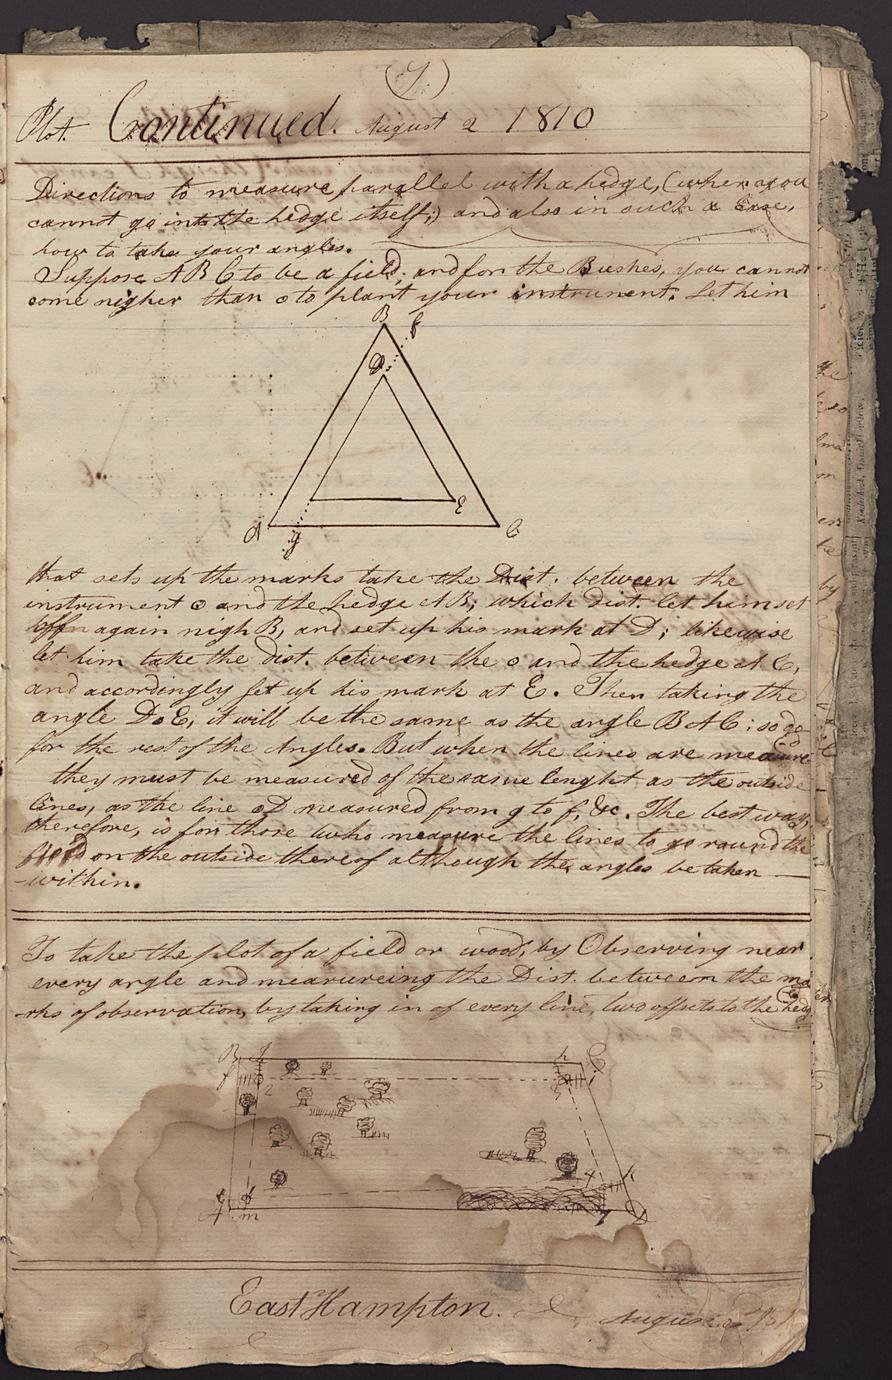 (7.)
Plot. Continued. August 2 1810
Directions to measure parallel with a hedge, (when you
cannot go into the hedge itself;) and also in such a Case,
how to take your angles.
Suppose A B C to be a field; and for the Bushes, you cannot
come nigher than o to plant your instrument. Let him
B
f
D
E
A
g
C
that sets up the marks take the Dist. between the
instrument o and the hedge A B; which dist. let him set
off again nigh B, and set up his mark at D; likewise
let him take the dist. between the o and the hedge A C,
and accordingly set up his mark at E. Then taking the
angle D o E, it will be the same as the angle B A C; so do
for the rest of the Angles. But when the lines are measure
they must be measured of the same lenght as the outside
lines, as the line o D measured from g to f, &c. The best way,
therefore, is for those who measure the lines to go round the
field on the outside thereof although the angles be taken
within.
To take the plot of a field or wood, by Observing near
every angle and measureing the Dist. between the ma
rks of observation, by taking in of every line, two offsets to the hedg
B
h
C
f
2
3
4
i
A
m
D
East Hampton.
August